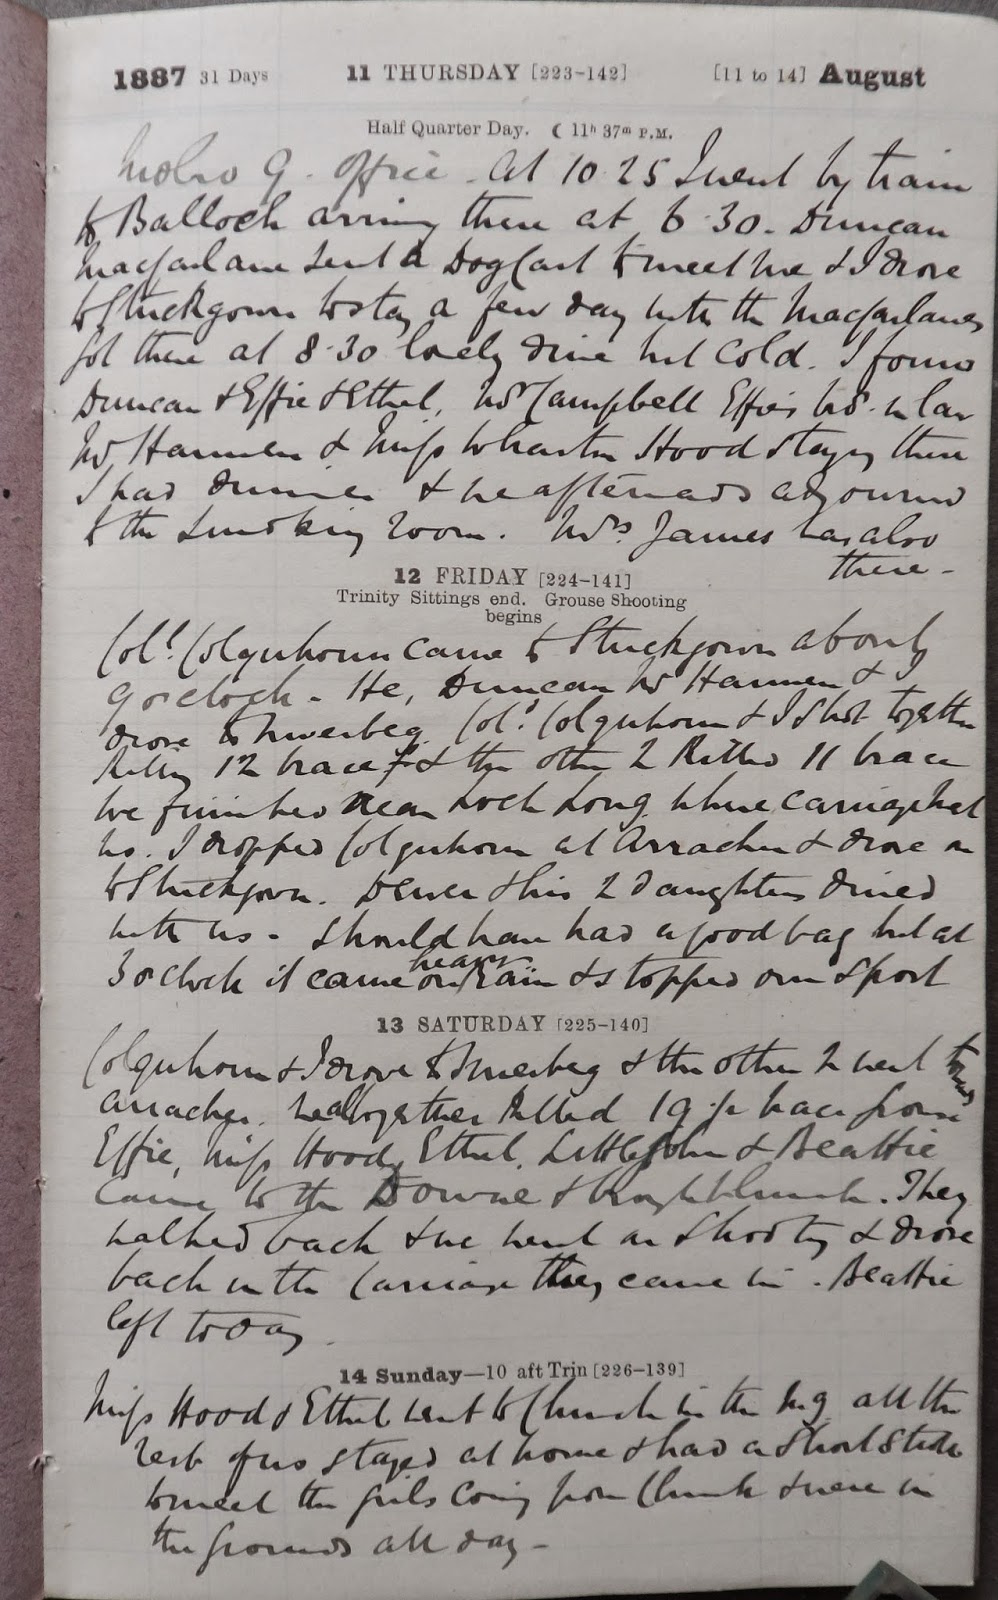 1887 31 Days 11 THURSDAY [223-142] [11 to 14] August
Half Quarter Day. ☾ 11h 37m P.M.
G. Office. At 10.25 I went by train
to Balloch arriving there at 6.30. Duncan
Macfarlane sent a Dog Cart to meet me & I drove
to Stuckgown to stay a few day with the Macfarlanes
Got there at 8.30 lovely drive but cold. I found
Duncan & Effie & Ethel, Mr Campbell Effie's br. in law
Mr Hannen & Miss Wharton Hood staying there
I had dinner & we afterwards adjourned
to the smoking room. Mrs. James was also
there -
12 FRIDAY [224-141]
Trinity Sittings end. Grouse Shooting
begins
Col. Colquhoun came to Stuckgown about
9 o'clock - He, Duncan Mr Hannen & I
drove to Inverbeg. Col. Colquhoun & I shot together
killing 12 brace & the other 2 killed 11 brace
We finished near Loch Long where carriage met
us. I dropped Colquhoun at Arrochar & drove on
to Stuckgown. & his 2 daughters dined
with us - should have had a good bag but at
3 o'clock it came on heavy rain & stopped our sport
13 SATURDAY [225-140]
Colquhoun & I drove to Inverbeg & the other 2 went towards
Arrochar. We altogether killed 19 ½ brace grouse
Effie, Miss Hood, Ethel, Littlejohn & Beattie
came to the & brought lunch. They
walked back & we went on shooting & drove
back in the carriage they came in. Beattie
left today.
14 Sunday—10 aft Trin [226-139]
Miss Hood & Ethel went to Church in the mg all the
rest of us stayed at home & had a short stroll
to meet the girls coming from Church & were in
the grounds all day -